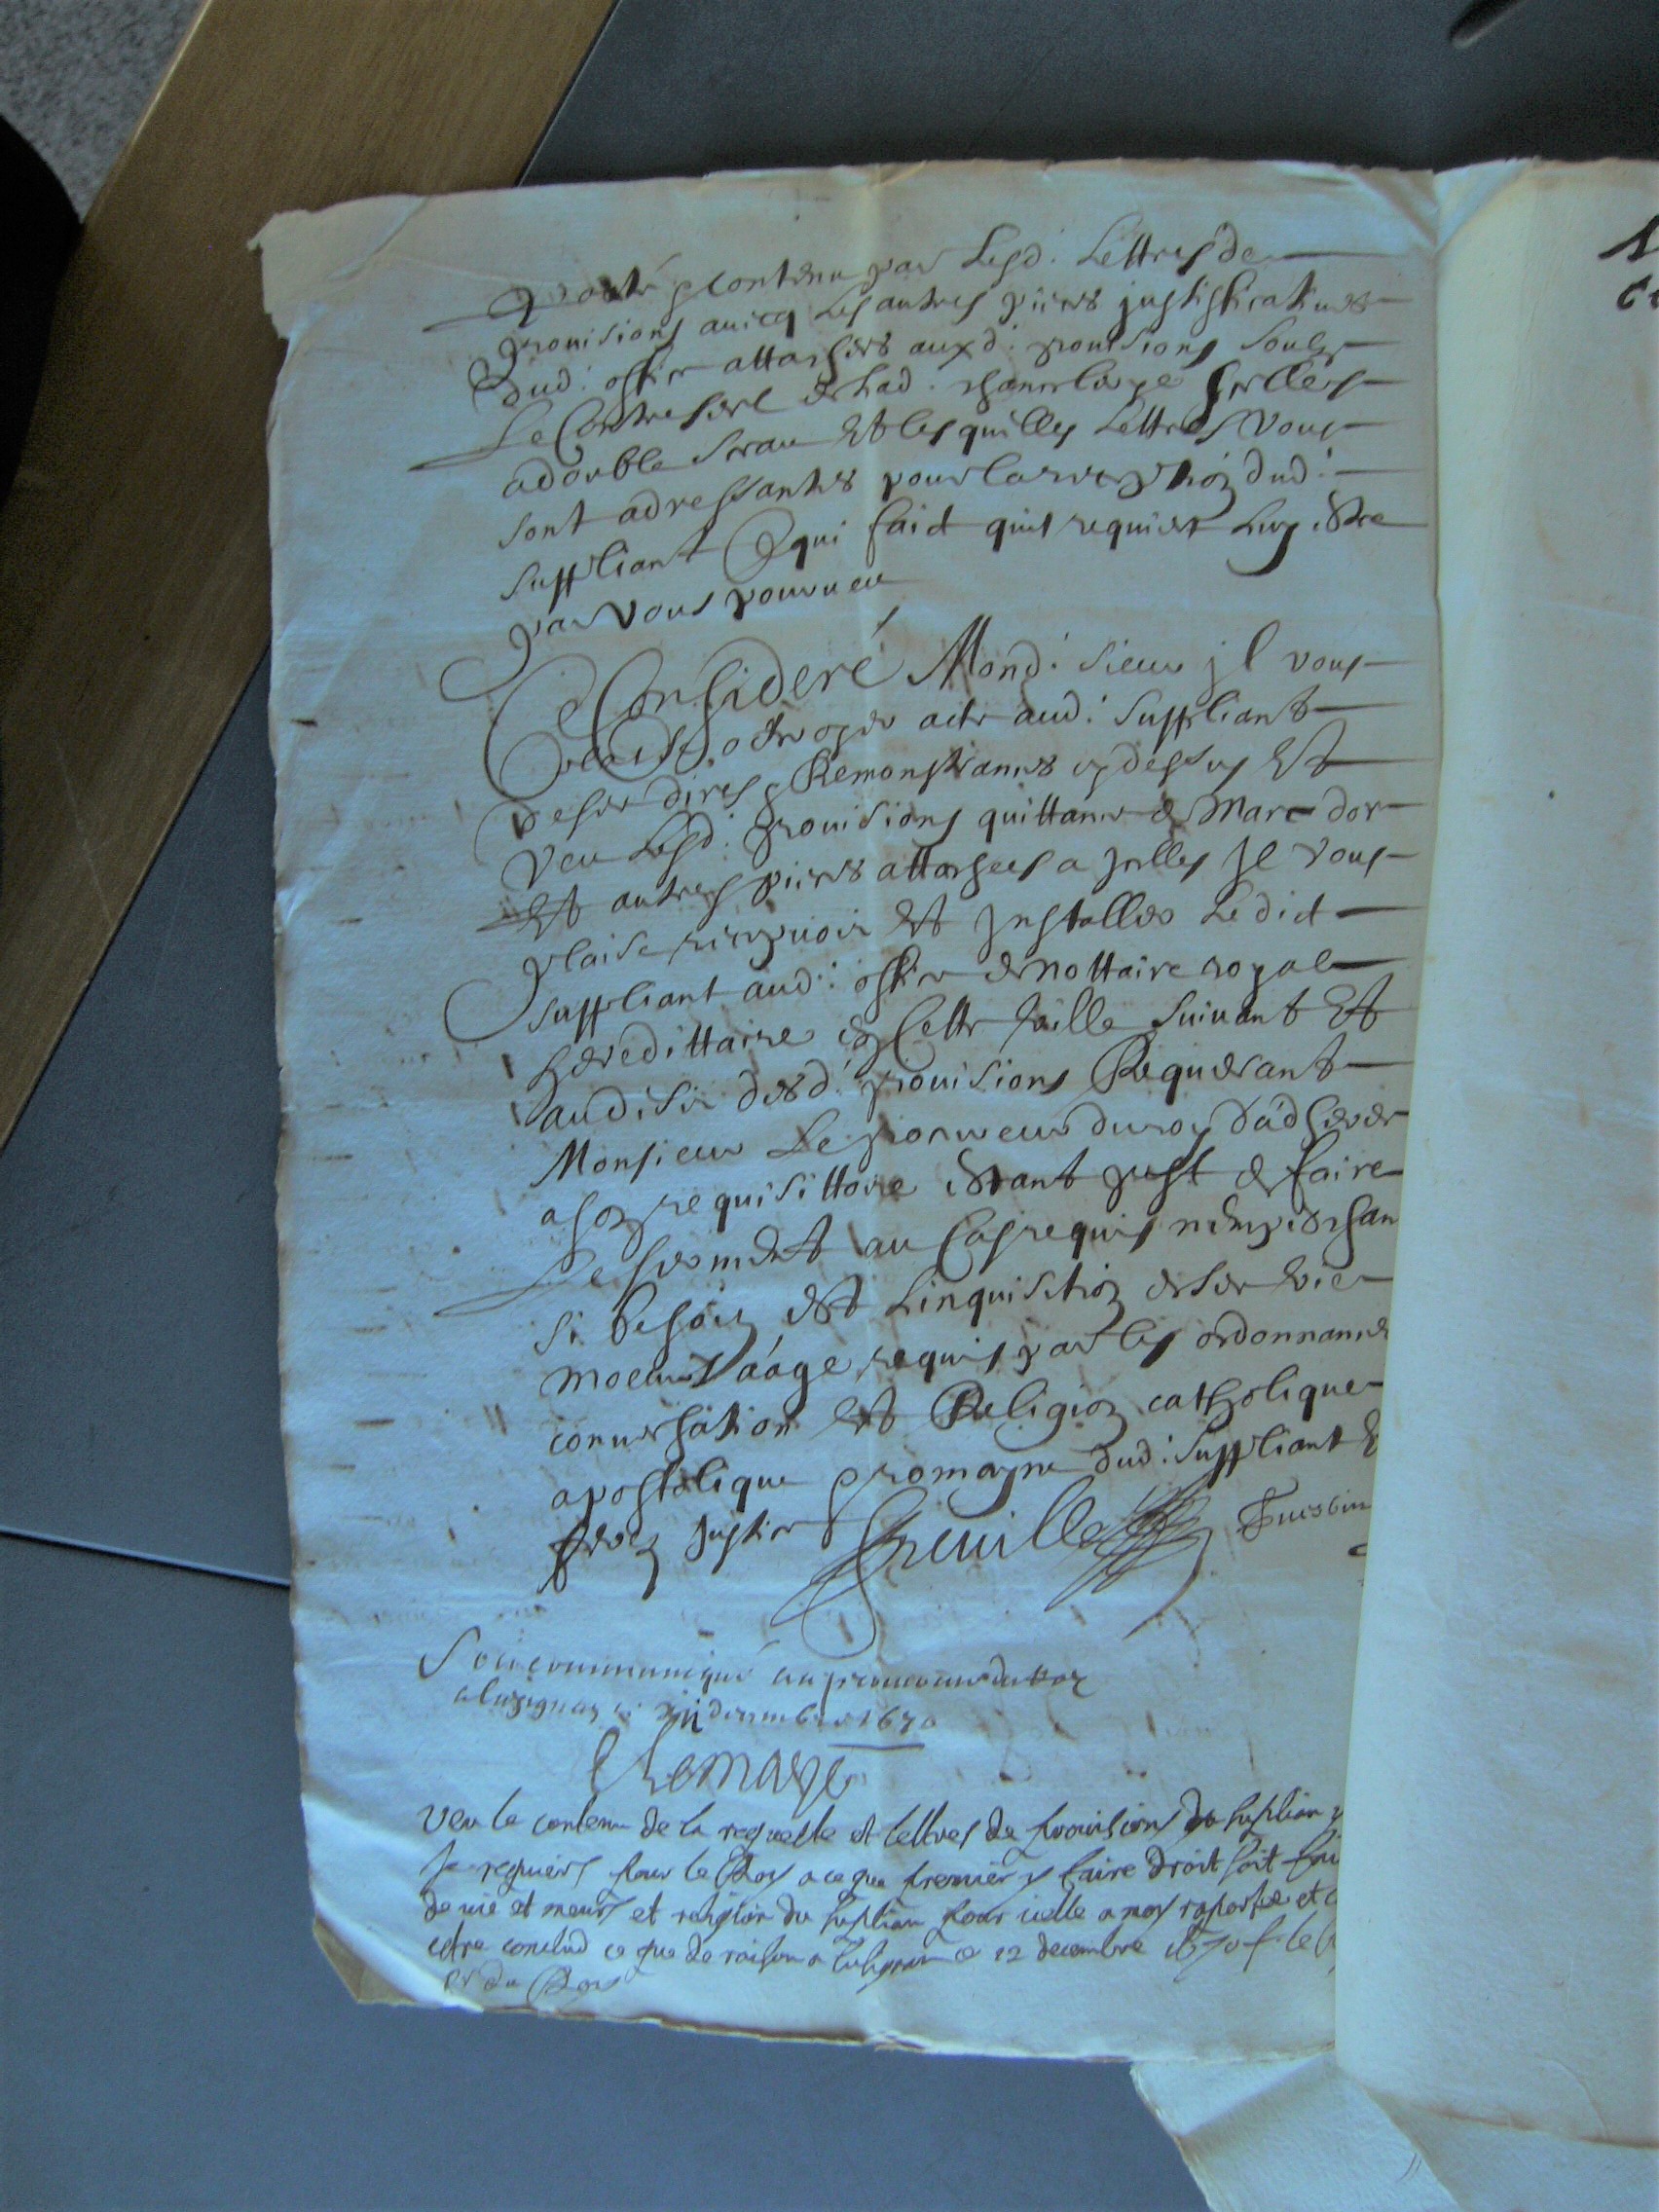 porté & contenu par Lesd. Lettres de
prouisions auecq Les autres pieces justifficatiues
dud. office attachées auxd. prouisions soubz
Le Contreseel de Lad. chancelerye scellées
adouble sceau Et lesquelles Lettres Vous
sont adressantes pour la reception dud.
suppliant Ce qui faict quil requiert Luy estre
par Vous pourueu
Ce Consideré Mond. sieur jl vous
plaise, octroyer acte aud. suppliant
de ses dires & Remonstrances cy dessus Et
Veu Lesd. prouisions quittance de Marc dor
Et autres pieces attachees a jcelles Jl vous
plaise receuoir Et Jnstaller Ledict
suppliant aud. office de nottaire royal
hereditaire en Cette Ville suiuant Et
au desir desd. prouisions Requerant
Monsieur Le procureur du roy dadherer
a son requisittoire estant prest de faire
Le serment au Cas requis
si besoin est Linquisition de ses vie
moeurs aage requis par les ordonnances
conuersation Et Religion catholique
apostolique & romayne dud. suppliant &
ferez justice Greuille
Soit communiqué au procureur du Roy
a lusignan ce xii decembre 1670
Veu le contenu de la requeste et lettres de prouisions du suplian
Je requiers pour le Roy a ce que premier y faire droit soit
de vie et meurs et religion du suplian pour icelle a moy raportee et
estre conclud ce que de raison a lusignan ce 12 decembre 1670
pr du Roy
1